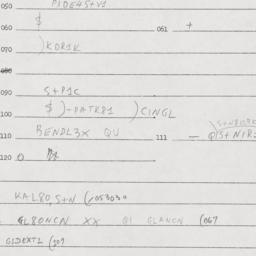 050 PIDE4S+V1
060 $ 061 +
070 )KOR1K
080
090 S+P1C
100 $ )-PATR81 )CINGL
110 BENDL3X QU 111 —
120 O
KAL80,S+N (/053030
GL80NCN XX QI GLANCN (067
GIDEXT1 (107